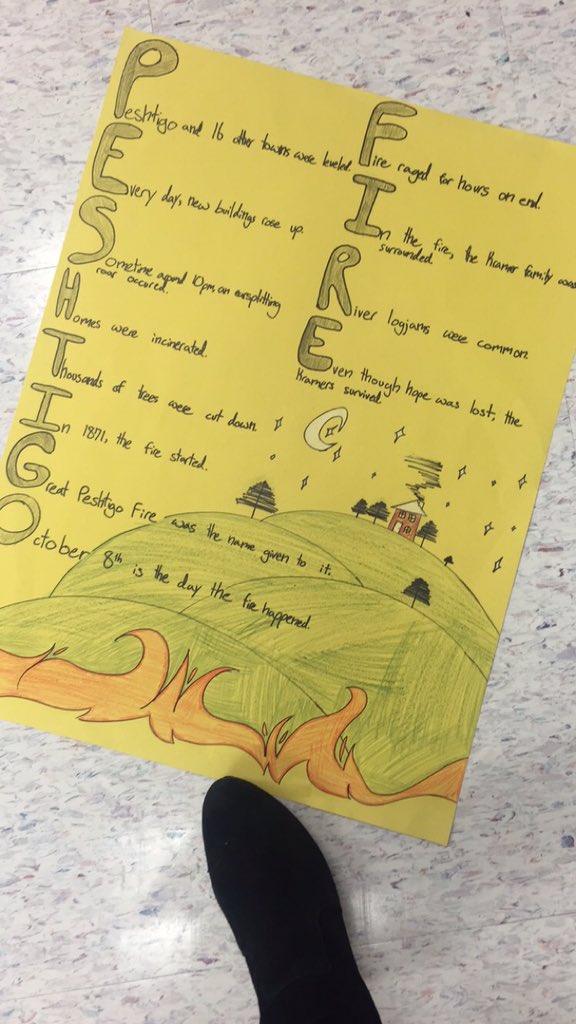 Peshtigo and 16 other towns were leveled.
Every day, new buildings rose up.
Sometime around 10pm, an earsplitting
roar occured.
Homes were incinerated.
Thousands of trees were cut down.
In 1871, the fire started.
Great Peshtigo Fire was the name given to it.
October 8th is the day the fire happened.
Fire raged for hours on end.
In the fire, the Kramer family was
surrounded.
River logjams were common.
Even though hope was lost, the
Kramers survived.